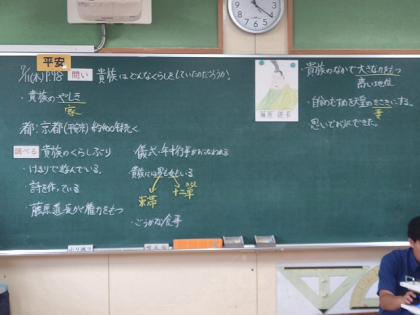 平安
9/11(木)P.48 問い 貴族はどんなくらしをしていたのだろうか?
・貴族のやしき
家
都:京都(平安京) 約400年続く
調べる 貴族のくらしぶり
・けまりで遊んでいる。
・詩を作っている
・藤原道長が権力をもつ
儀式・年中行事がおこなわれる
貴族には男も女もいる
束帯
十二単
・ごうかな食事
藤原道長
・貴族のなかで大きな力をもつ
高い地位
・自分のむすめを天皇のきさきにする。
妻
思いどおりにできた。